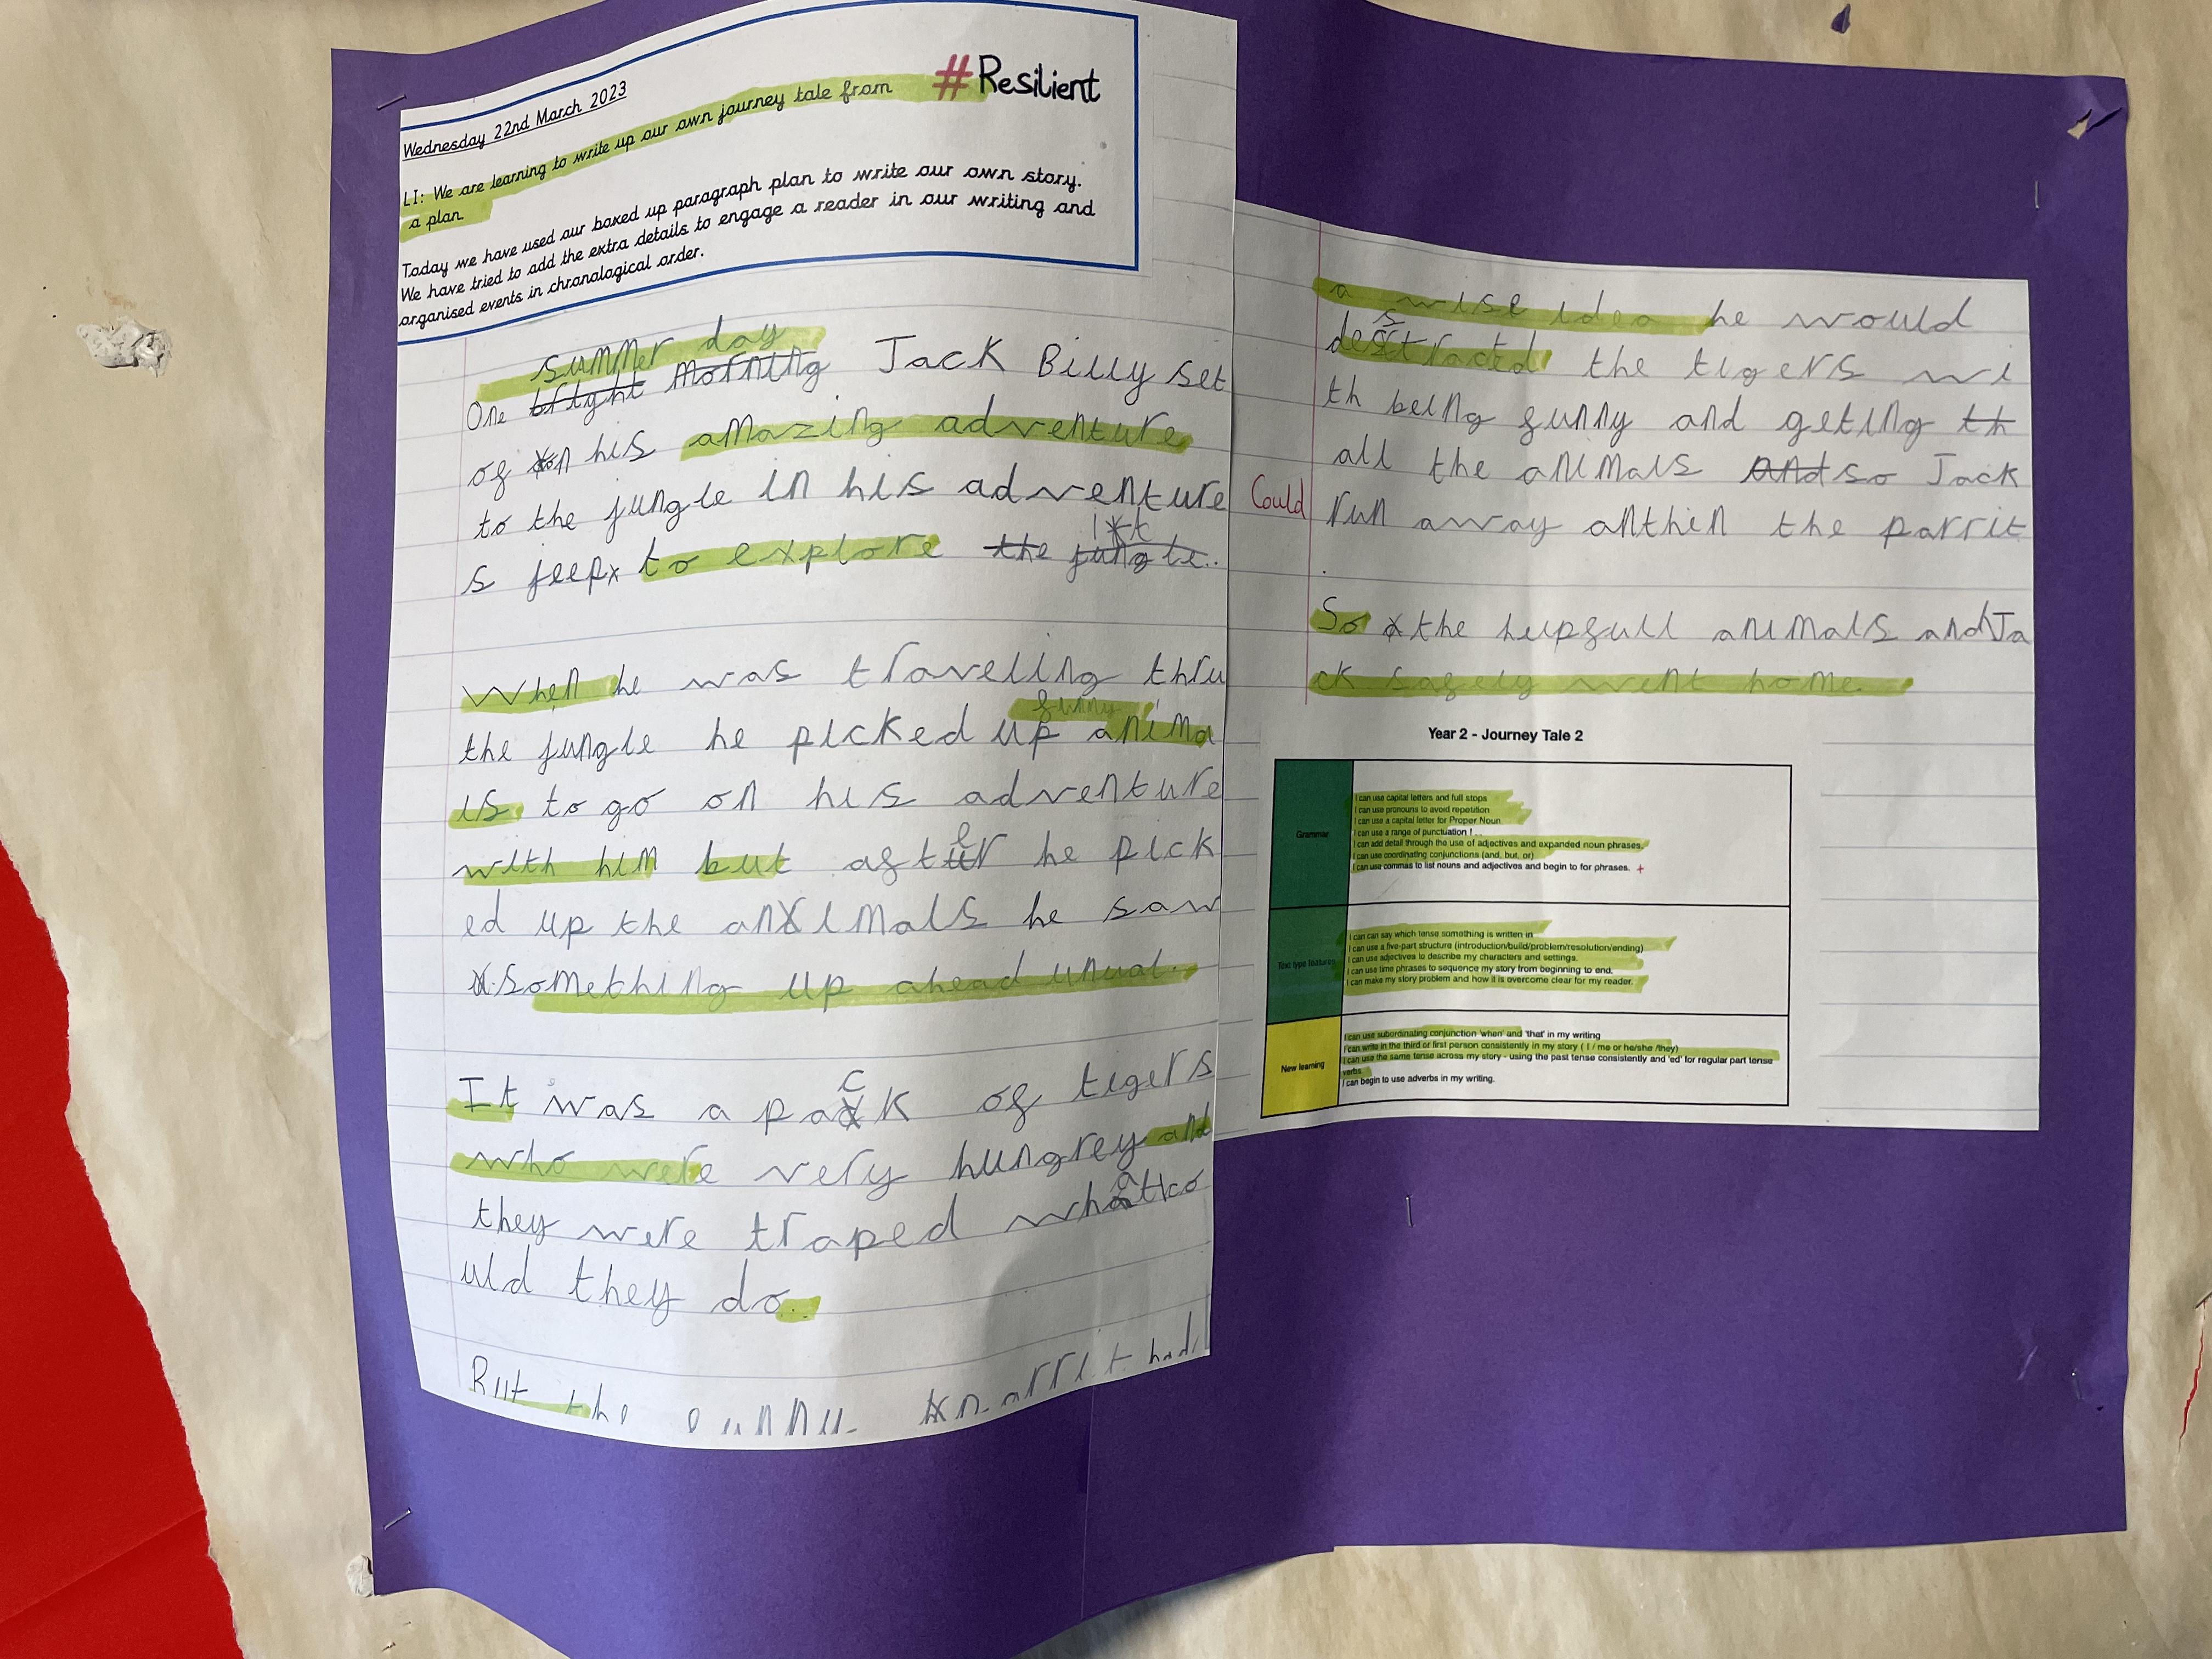 Wednesday 22nd March 2023
#Resilient
LI: We are learning to write up our own journey tale from
a plan
Today we have used our boxed up paragraph plan to write our own story.
We have tried to add the extra details to engage a reader in our writing and
organised events in chronological order.
summer day
One bright morning Jack Billy set
of on his amazing adventure
to the jungle in his adventure
s jeep to explore the jungle..
it
When he was traveling thru
funny
the jungle he picked up anima
ls to go on his adventure
with him but after he pick
ed up the animals he saw
something up ahead unual.
It was a pack of tigers
who were very hungrey and
they were traped what co
uld they do.
But the funny parrit had
a wise idea he would
destracted the tigers wi
th being funny and geting th
all the animals and so Jack
Could
run away anthen the parrit
.
So the helpfull animals and Ja
ck safely went home.
Year 2 - Journey Tale 2
Grammar
I can use capital letters and full stops
I can use pronouns to avoid repetition
I can use a capital letter for Proper Noun
I can use a range of punctuation ! ...
I can add detail through the use of adjectives and expanded noun phrases.
I can use coordinating conjunctions (and, but, or)
I can use commas to list nouns and adjectives and begin to for phrases. +
Text type features
I can can say which tense something is written in.
I can use a five-part structure (introduction/build/problem/resolution/ending)
I can use adjectives to describe my characters and settings.
I can use time phrases to sequence my story from beginning to end.
I can make my story problem and how it is overcome clear for my reader.
New learning
I can use subordinating conjunction 'when' and 'that' in my writing
I can write in the third or first person consistently in my story ( I / me or he/she /they)
I can use the same tense across my story - using the past tense consistently and 'ed' for regular part tense
verbs
I can begin to use adverbs in my writing.